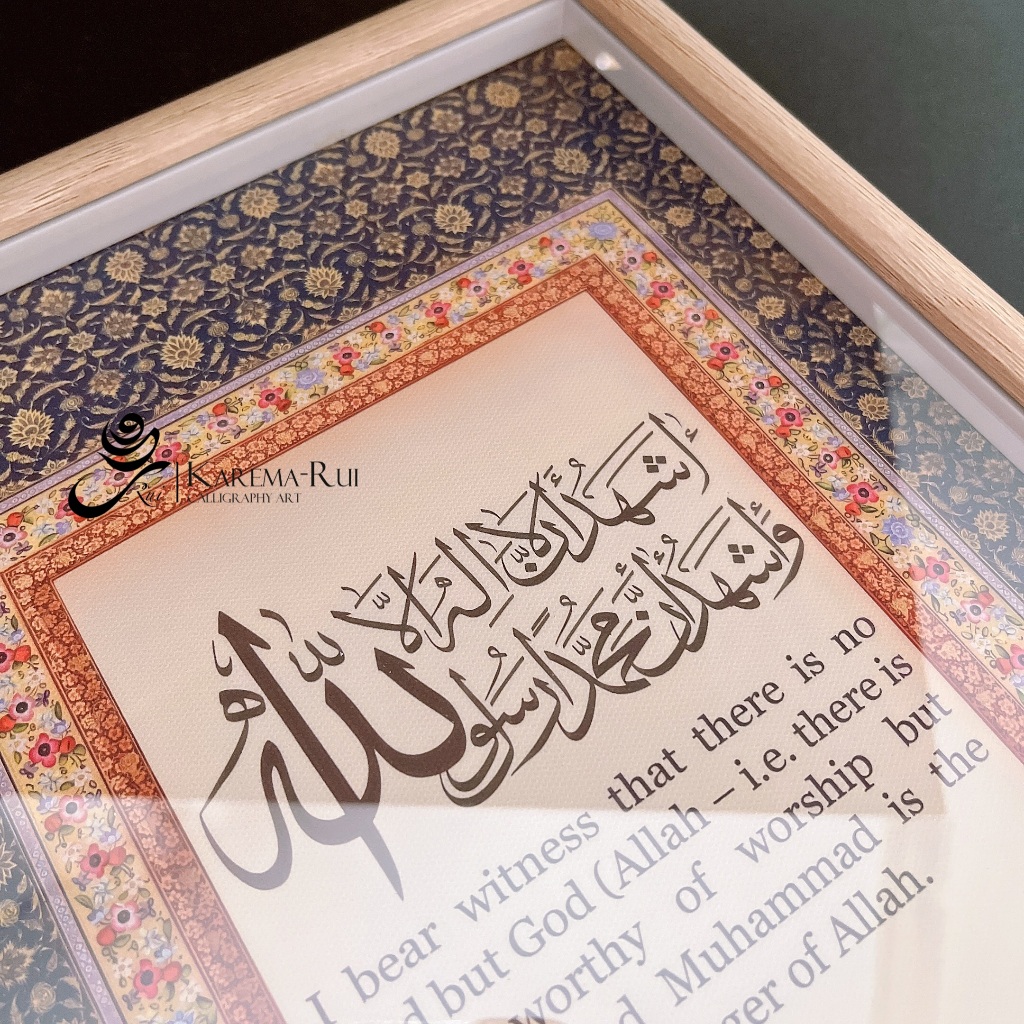 أشهد أن لا إله إلا الله
وأشهد أن محمدا رسول
Rui
KAREMA-RUI
CALLIGRAPHY ART
I bear witness that there is no
but God (Allah – i.e. there is
worthy of worship but
Muhammad is the
of Allah.